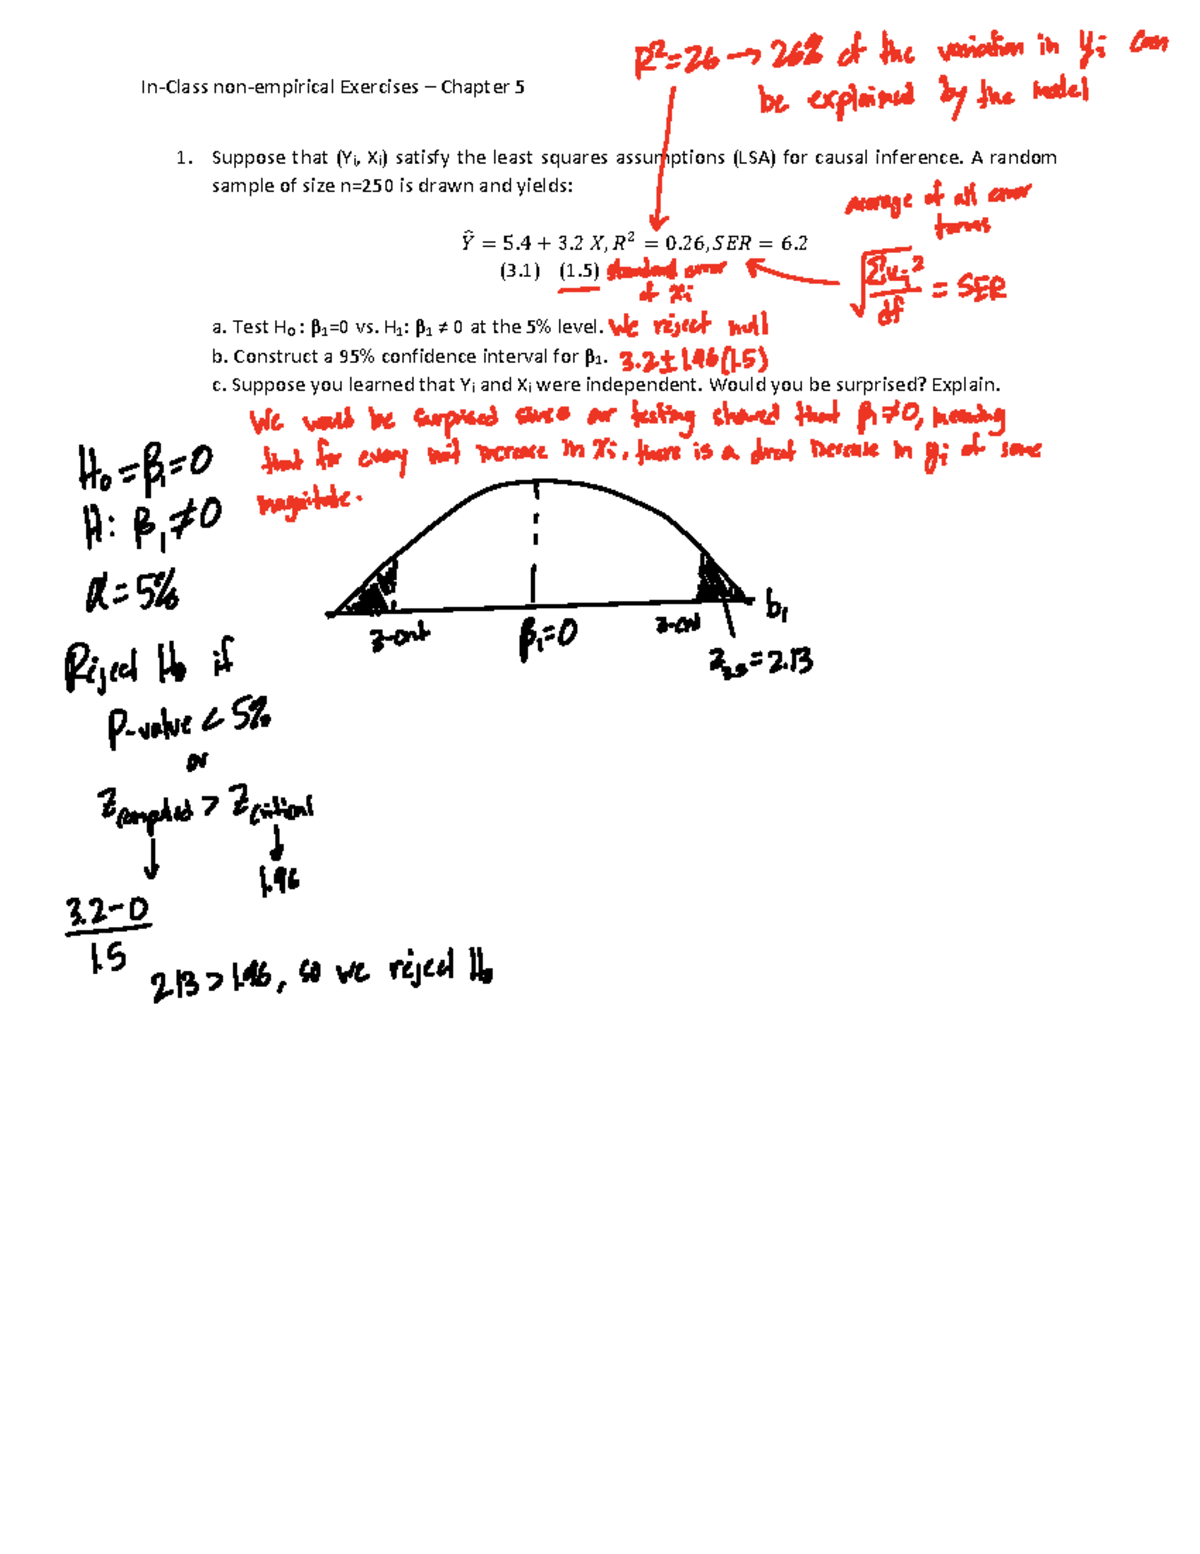 R²=26 → 26% of the variation in Yi can
be explained by the model
In-Class non-empirical Exercises – Chapter 5
1. Suppose that (Yi, Xi) satisfy the least squares assumptions (LSA) for causal inference. A random
sample of size n=250 is drawn and yields:
average of all error
terms
Ŷ = 5.4 + 3.2 X, R² = 0.26, SER = 6.2
(3.1) (1.5) standard error
of Xi
√(Σui²/df) = SER
a. Test H₀ : β₁=0 vs. H₁: β₁ ≠ 0 at the 5% level. We reject null
b. Construct a 95% confidence interval for β₁. 3.2±1.96(1.5)
c. Suppose you learned that Yi and Xi were independent. Would you be surprised? Explain.
We would be surprised since our testing showed that β₁≠0, meaning
that for every unit increase in Xi, there is a increase in yi of some
magnitude.
H₀=β₁=0
H: β₁≠0
α=5%
Reject H₀ if
P-value < 5%
or
Zcomputed > Zcritical
1.96
3.2-0
1.5
2.13>1.96, so we reject H₀
z-crit
β₁=0
z-crit
b₁
Z3.2=2.13